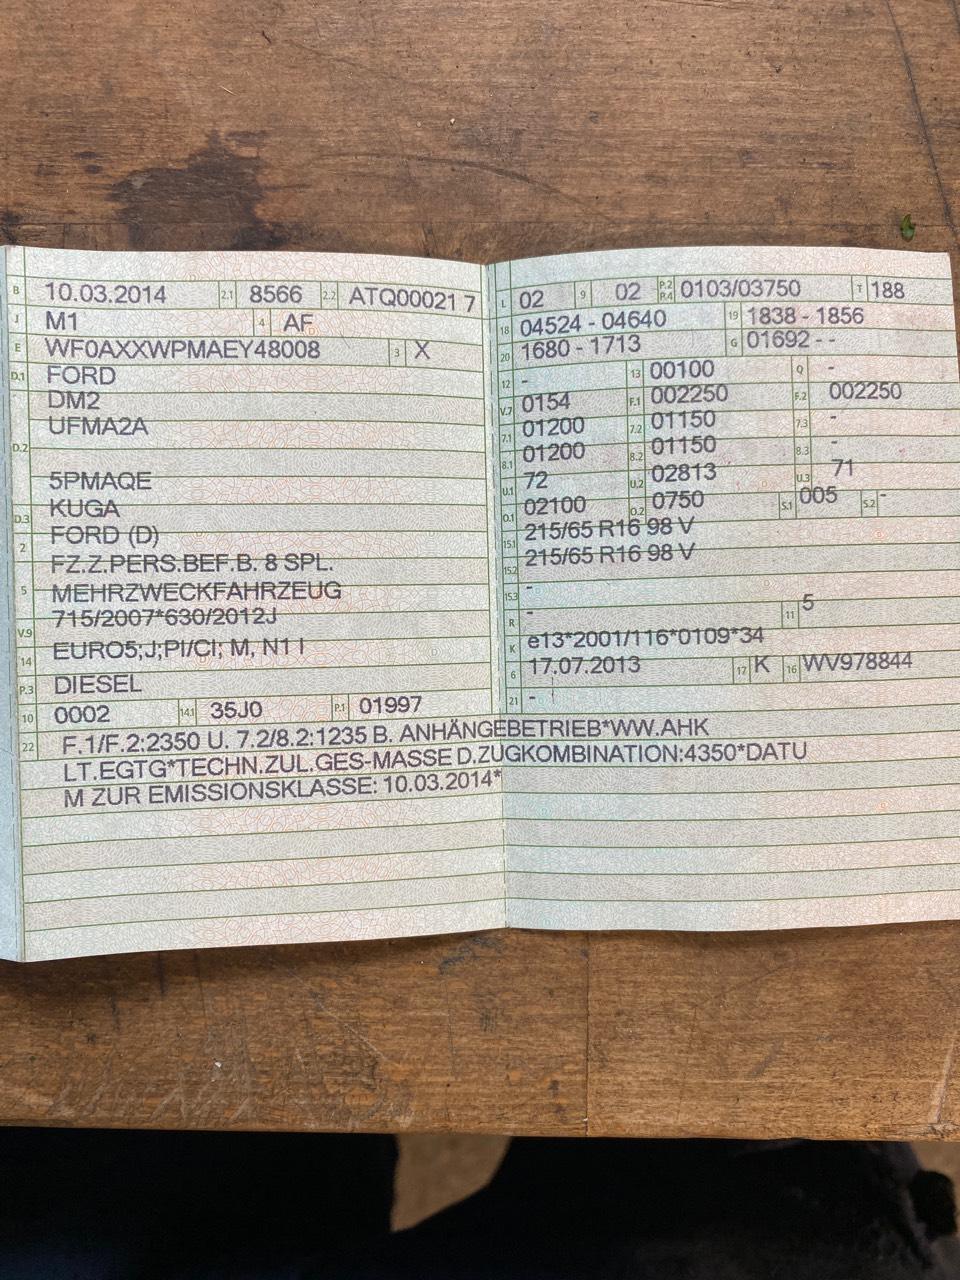 B 10.03.2014 2.1 8566 2.2 ATQ00021 7
J M1 4 AF
E WF0AXXWPMAEY48008 3 X
D.1 FORD
DM2
UFMA2A
D.2
5PMAQE
D.3 KUGA
2 FORD (D)
FZ.Z.PERS.BEF.B. 8 SPL.
5 MEHRZWECKFAHRZEUG
V.9 715/2007*630/2012J
14 EURO5;J;PI/CI; M, N1 I
P.3 DIESEL
10 0002 14.1 35J0 P.1 01997
L 02 9 02 P.2 P.4 0103/03750 T 188
18 04524 - 04640 19 1838 - 1856
20 1680 - 1713 G 01692 - -
12 - 13 00100 Q -
V.7 0154 F.1 002250 F.2 002250
7.1 01200 7.2 01150 7.3 -
8.1 01200 8.2 01150 8.3 -
U.1 72 U.2 02813 U.3 71
O.1 02100 O.2 0750 S.1 005 S.2 -
15.1 215/65 R16 98 V
15.2 215/65 R16 98 V
15.3 -
R - 11 5
K e13*2001/116*0109*34
6 17.07.2013 17 K 16 WV978844
21 -
22 F.1/F.2:2350 U. 7.2/8.2:1235 B. ANHÄNGEBETRIEB*WW.AHK
LT.EGTG*TECHN.ZUL.GES-MASSE D.ZUGKOMBINATION:4350*DATU
M ZUR EMISSIONSKLASSE: 10.03.2014*